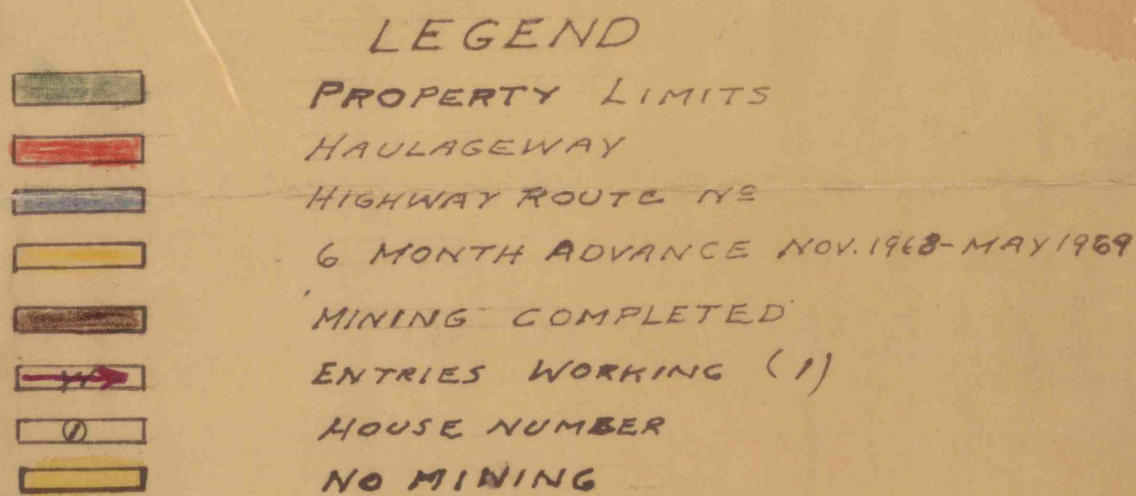 LEGEND
PROPERTY LIMITS
HAULAGEWAY
HIGHWAY ROUTE Nº
6 MONTH ADVANCE NOV. 1968-MAY 1969
MINING COMPLETED
W
ENTRIES WORKING (1)
HOUSE NUMBER
NO MINING